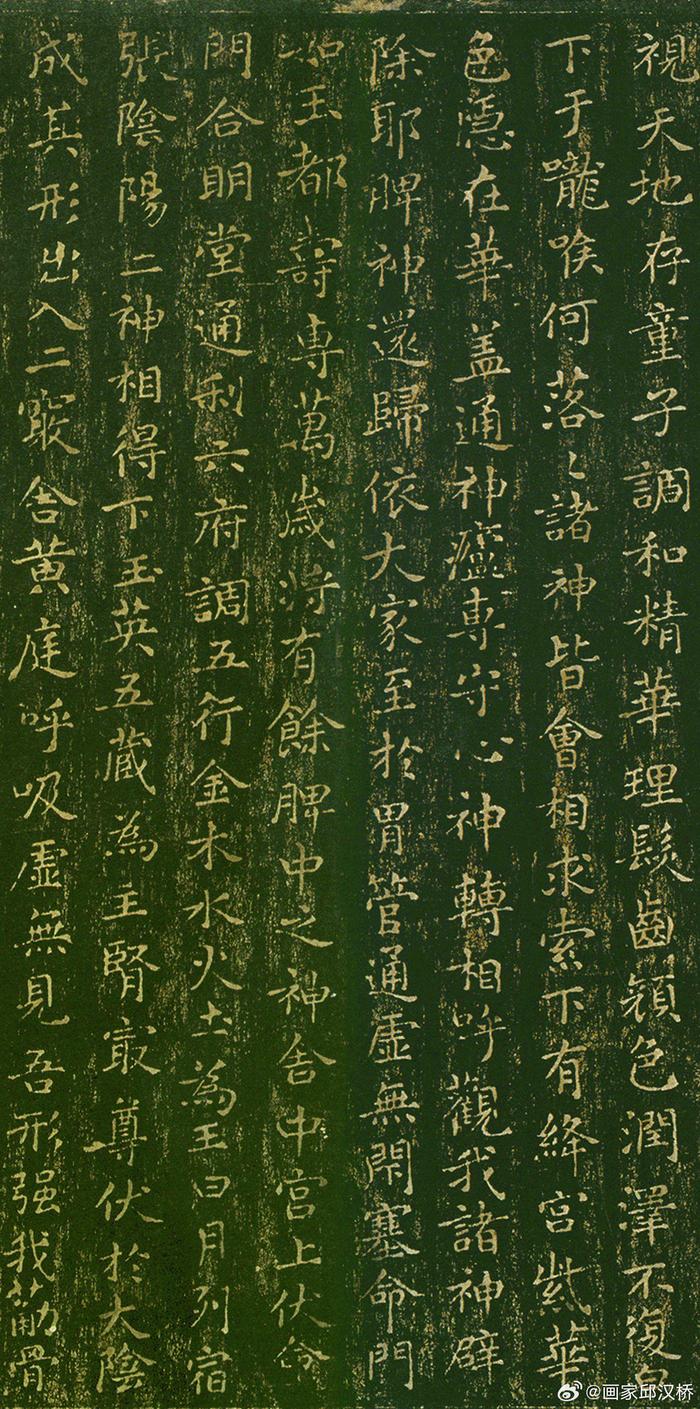 視天地存童子調和精華理髮齒顏色潤澤不復白
下于嚨喉何落〻諸神皆會相求索下有絳宮紫華
色隱在華盖通神廬專守心神轉相呼觀我諸神辟
除耶脾神還歸依大家至於胃管通虛無閉塞命門
如玉都壽專萬歲將有餘脾中之神舍中宮上伏命
門合明堂通利六府調五行金木水火土為王日月列宿
張陰陽二神相得下玉英五藏為主腎冣尊伏於大陰
成其形出入二竅舍黄庭呼吸虛無見吾形强我筋骨
@画家邱汉桥